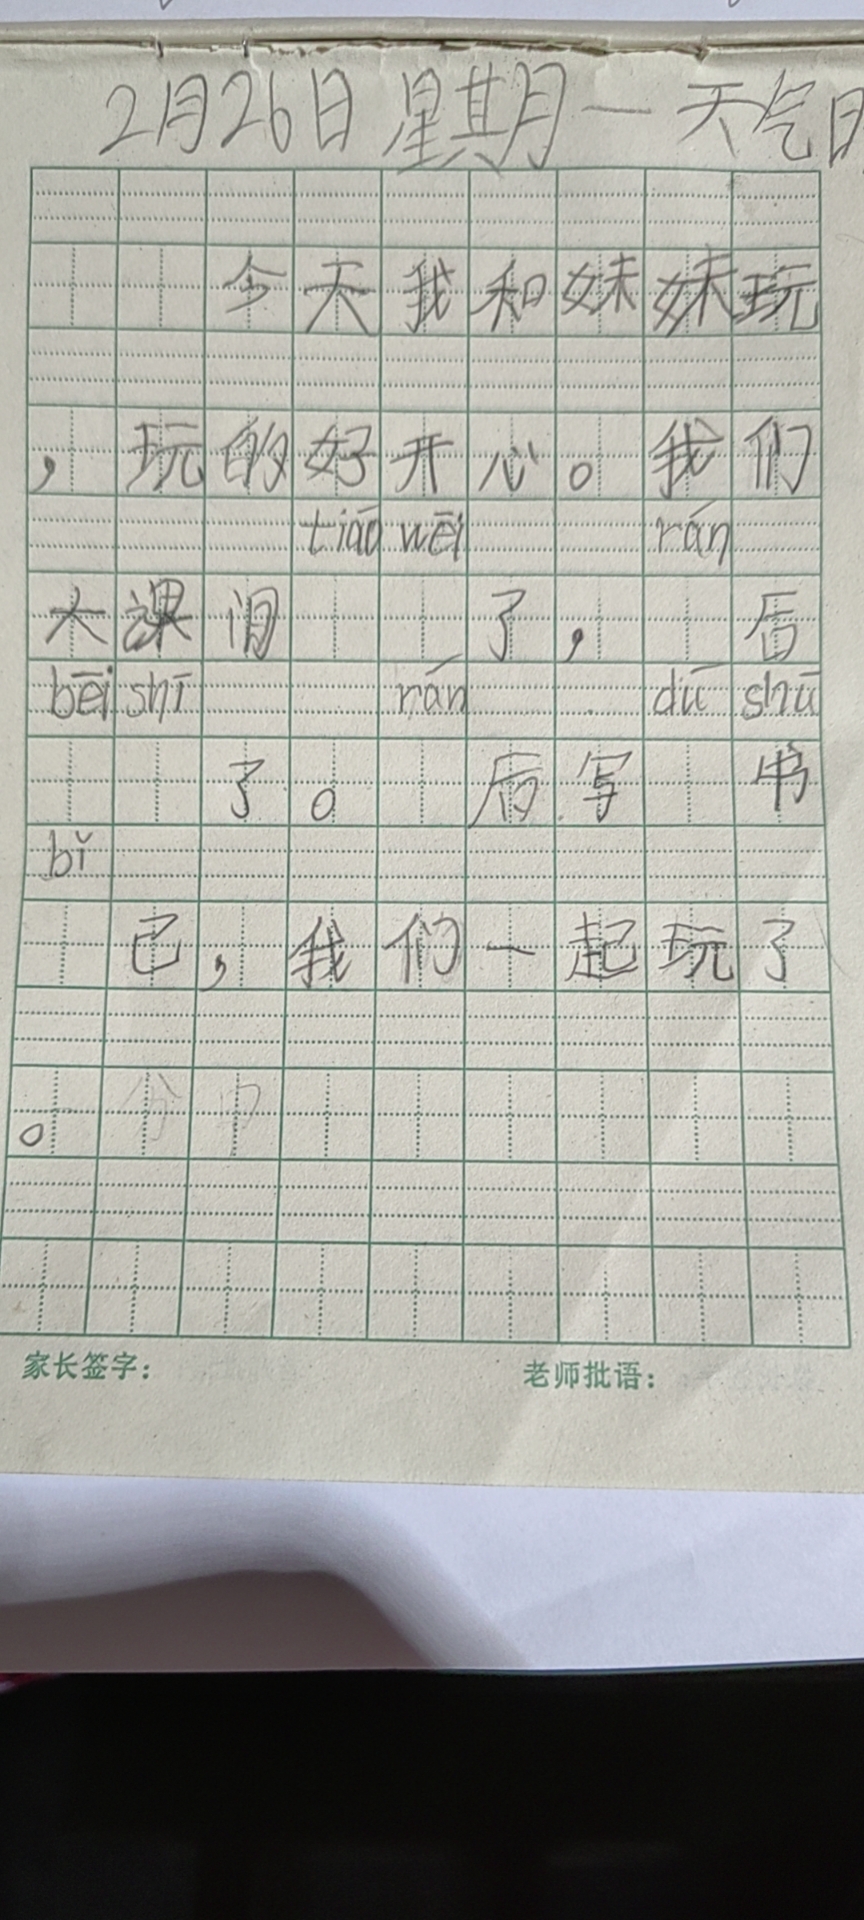 2月26日 星期一 天气日
今天我和妹妹玩
，玩的好开心。我们
tiāo wēi rán
大课间 了， 后
bēi shī rán dū shū
了。 后写 书
bǐ
已，我们一起玩了
。
家长签字： 老师批语：